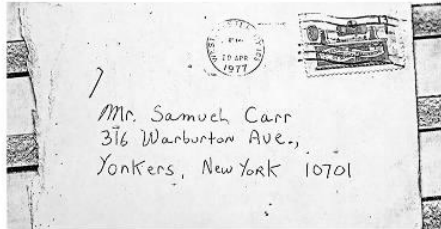 PM
19 APR
1977
Mr. Samuel Carr
316 Warburton Ave.,
Yonkers, New York 10701